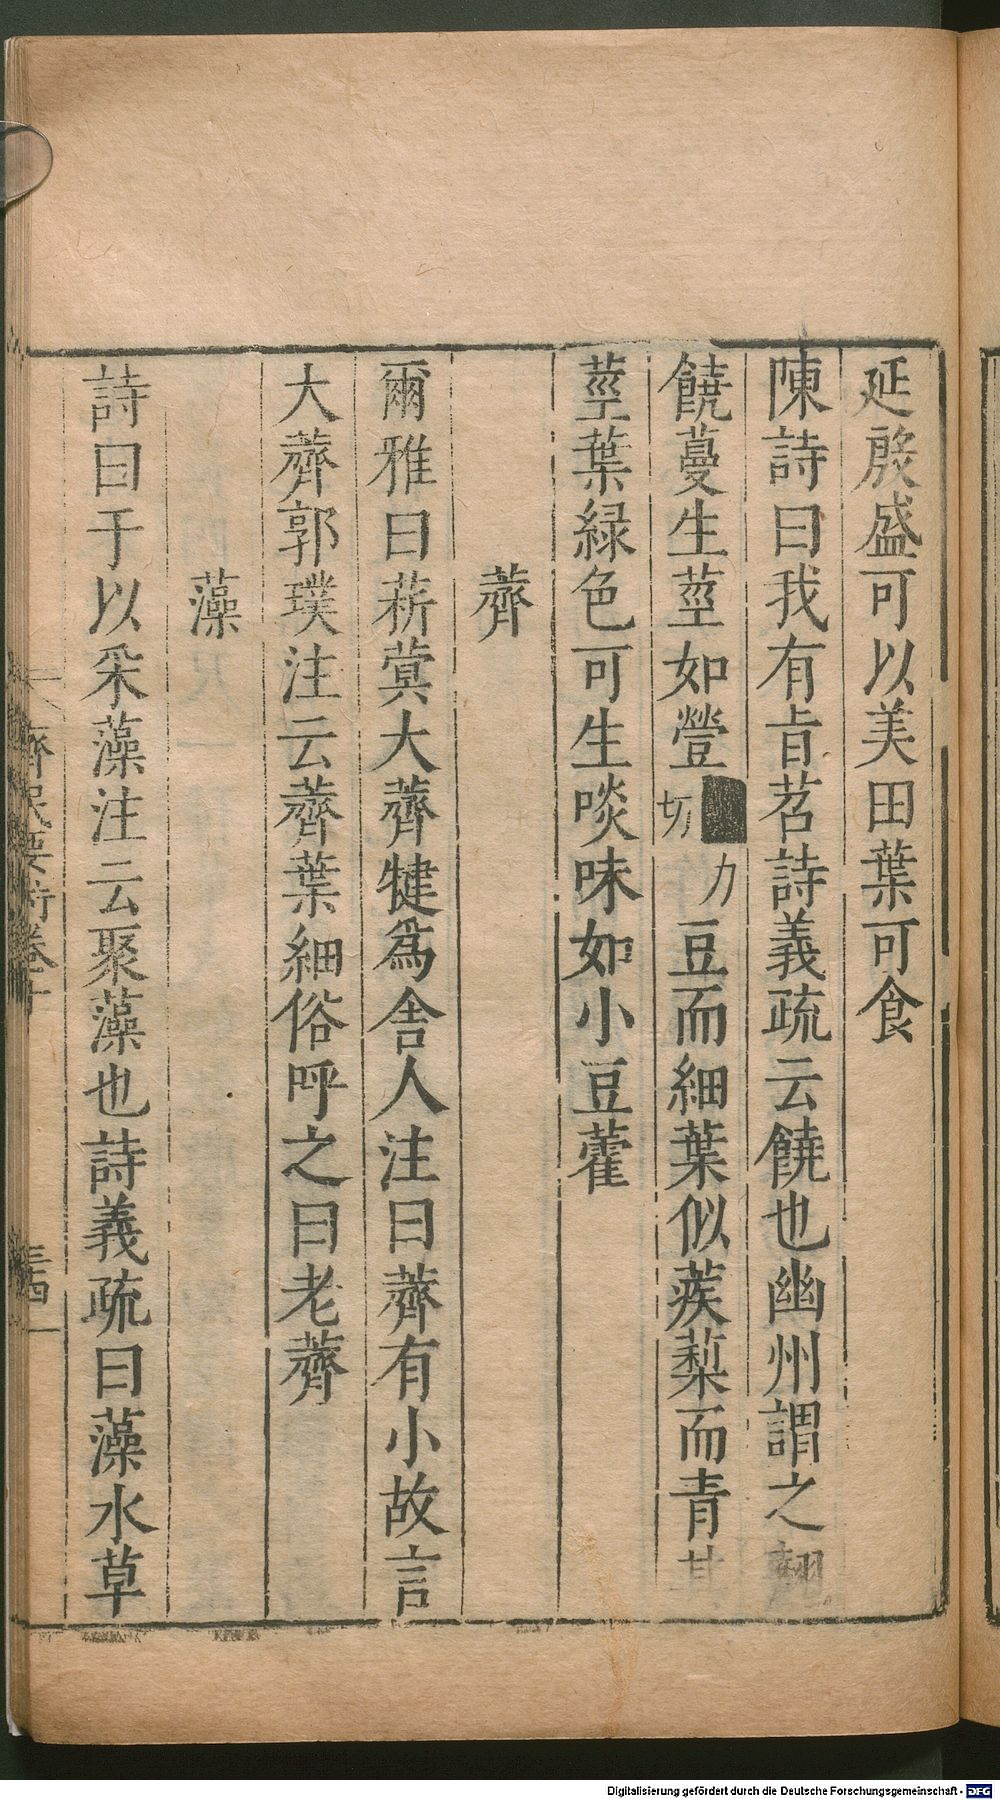 延殷盛可以美田葉可食
陳詩曰我有旨苕詩義疏云饒也幽州謂之翹
饒蔓生莖如䝁力切豆而細葉似蒺蔾而青其
莖葉緑色可生啖味如小豆藿
薺
爾雅曰菥蓂大薺犍爲舎人注曰薺有小故言
大薺郭璞注云薺葉細俗呼之曰老薺
藻
詩曰于以采藻注云聚藻也詩義疏曰藻水草
齊民要術卷十
Digitalisierung gefördert durch die Deutsche Forschungsgemeinschaft - DFG